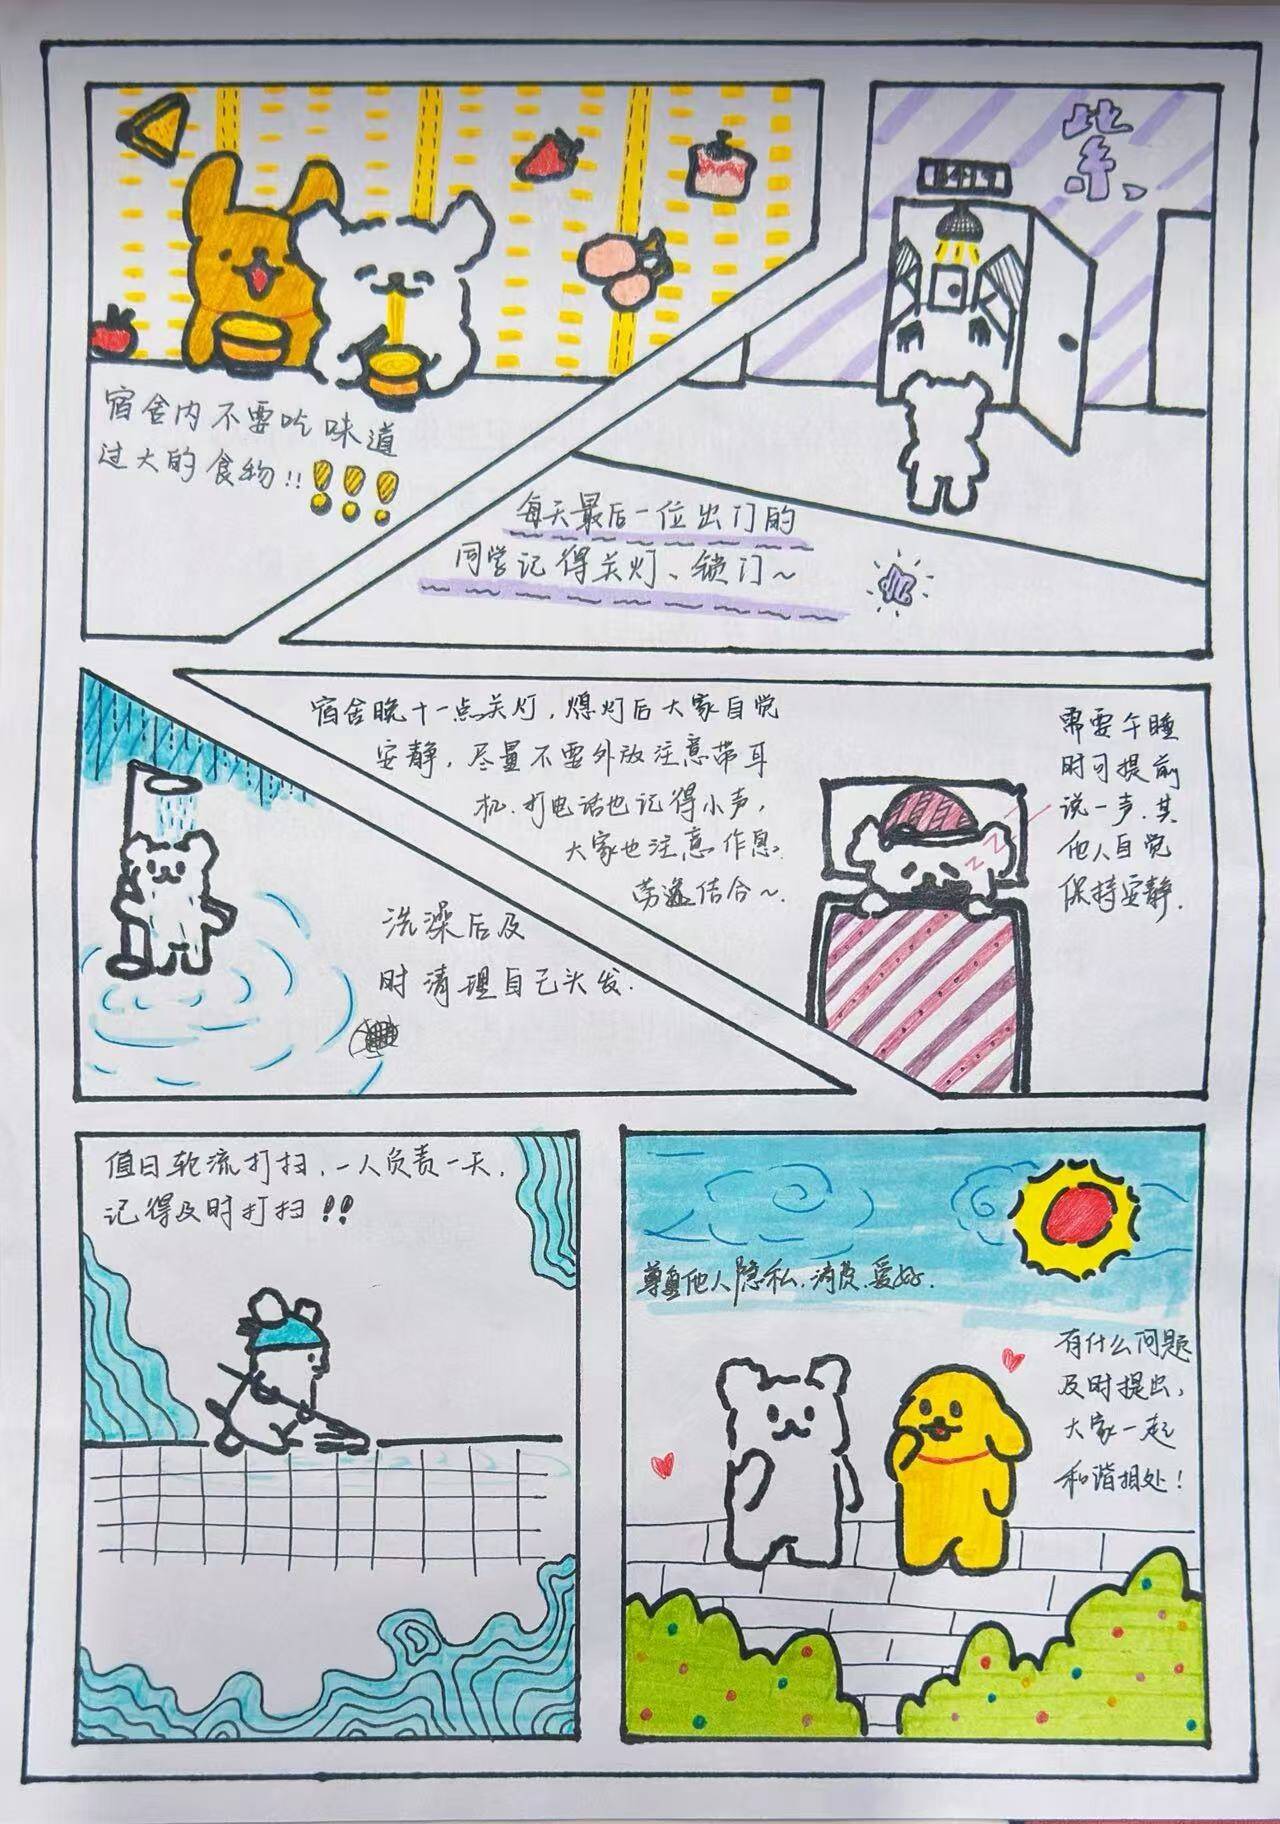 宿舍内不要吃味道
过大的食物!!!!!
紫
每天最后一位出门的
同学记得关灯、锁门~
宿舍晚十一点关灯,熄灯后大家自觉
安静,尽量不要外放注意带耳
机.打电话也记得小声,
大家也注意作息.
劳逸结合~
需要午睡
时可提前
说一声.其
他人自觉
保持安静.
洗澡后及
时清理自己头发.
值日轮流打扫,一人负责一天,
记得及时打扫!!!
尊重他人隐私.消费.爱好.
有什么问题
及时提出,
大家一起
和谐相处!